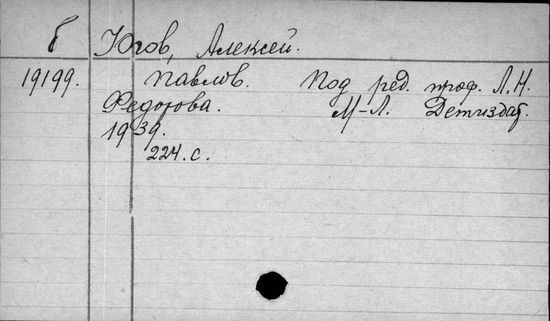 б Югов, Алексей.
19199. Павлов. Под ред. проф. Л.Н.
Федорова. М-Л. Детиздат,
1939.
224.с.